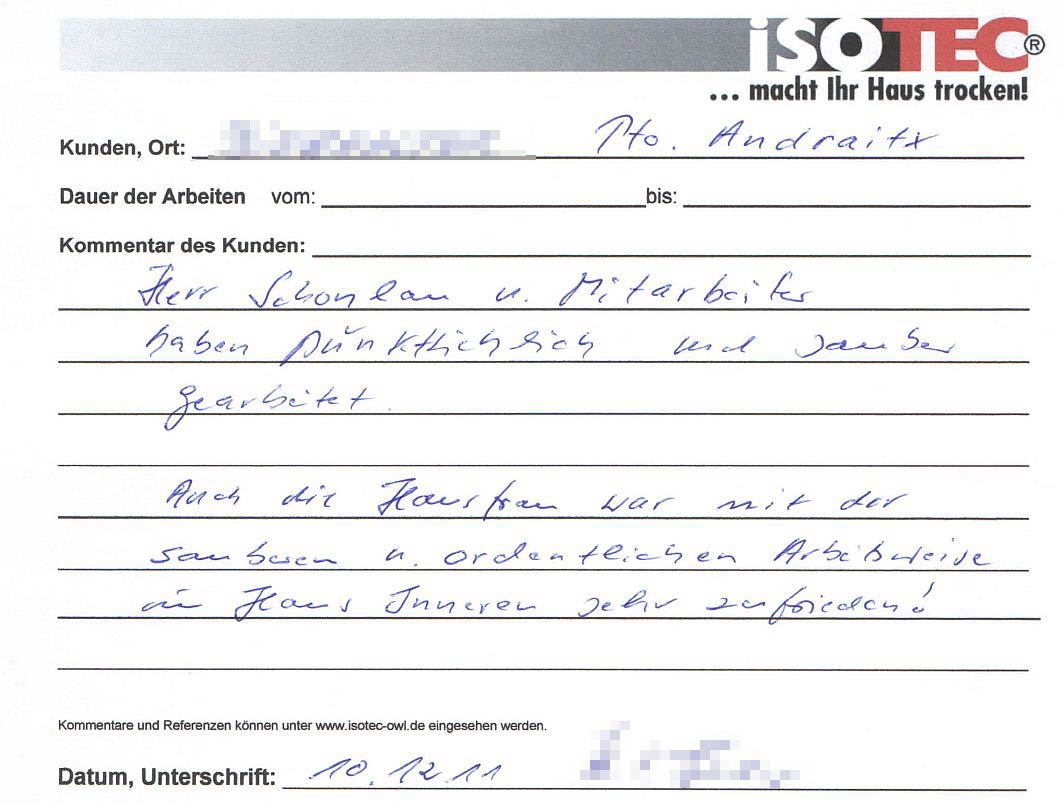 iSOTEC®
... macht Ihr Haus trocken!
Kunden, Ort: Pto. Andraitx
Dauer der Arbeiten vom: bis:
Kommentar des Kunden:
Herr Schonlau u. Mitarbeiter
haben pünktlichlich und sauber
gearbeitet.
Auch die Hausfrau war mit der
sauberen u. ordentlichen Arbeitsweise
im Haus Inneren sehr zufrieden!
Kommentare und Referenzen können unter www.isotec-owl.de eingesehen werden.
Datum, Unterschrift: 10.12.11